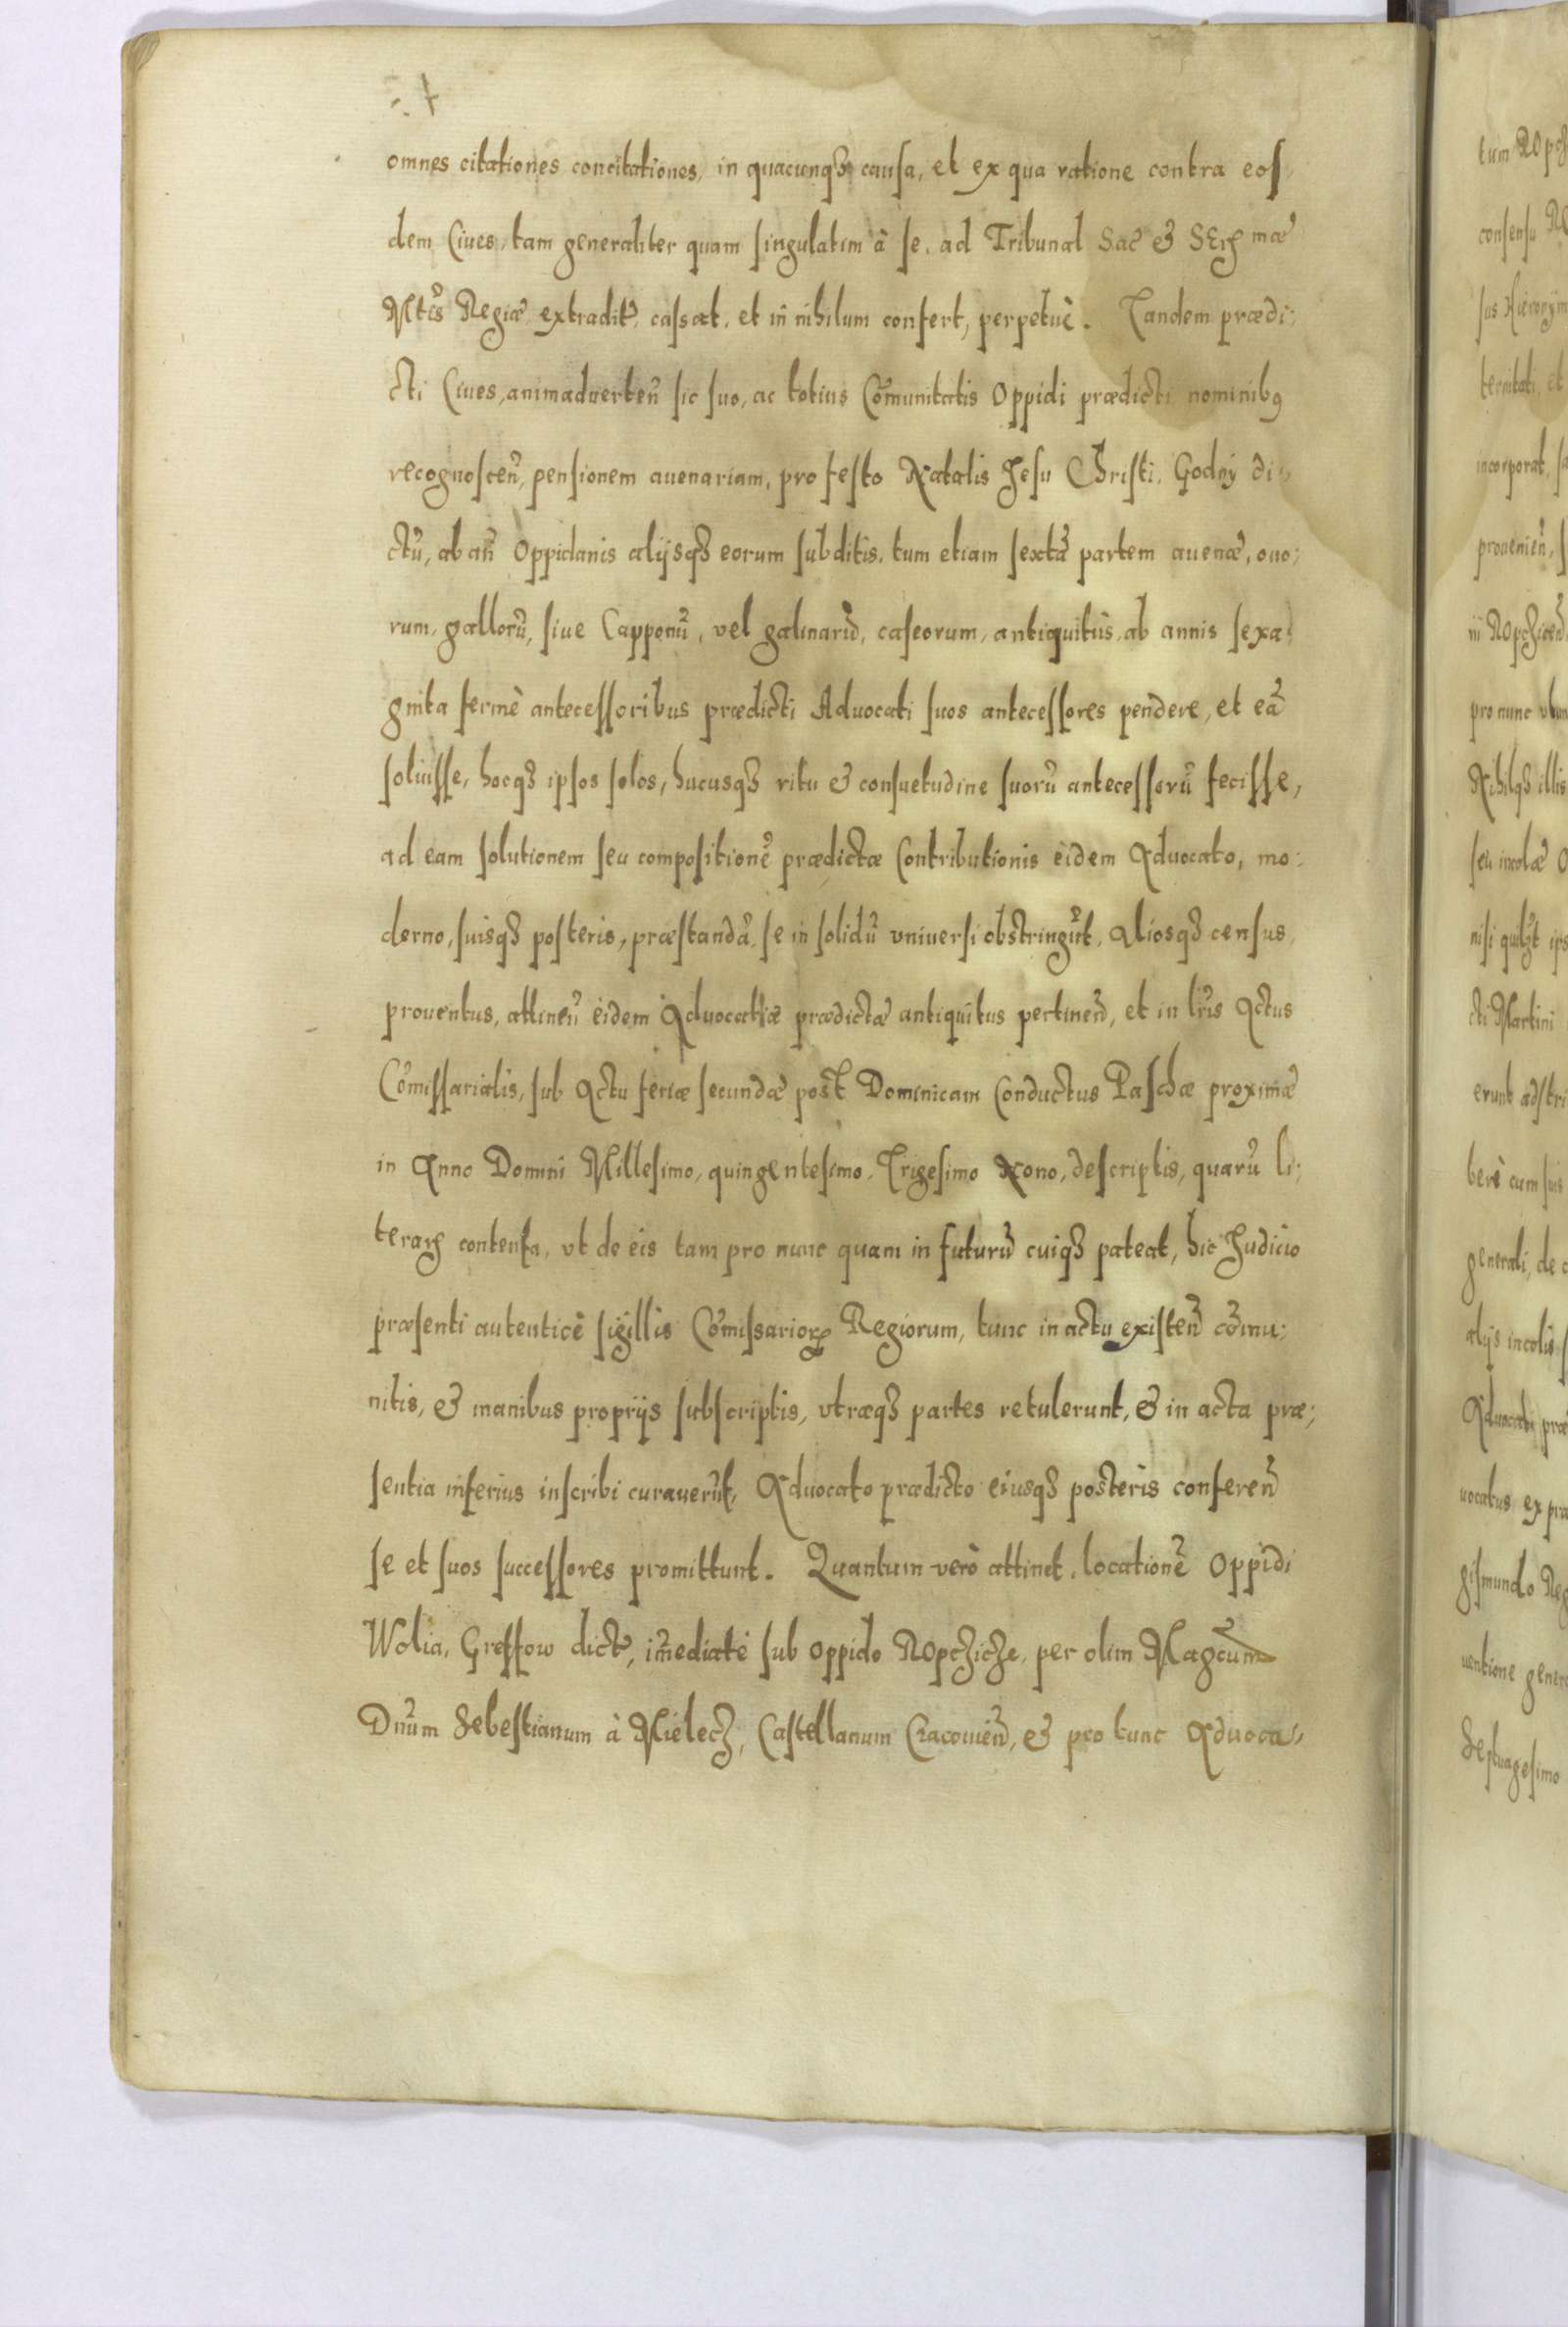 omnes citationes concitationes, in quacunqȝ causa, et ex qua ratione contra eos,
dem Ciues, tam generaliter quam singulatim à se, ad Tribunal Sac & Sermæ
Mtis Regiæ extradit, cassat, et in nihilum confert, perpetuè. Tandem prædi;
cti Ciues, animaduerteñ sic suo, ac totius Cõmunitatis Oppidi prædicti nominibꝯ
recognosceñ, pensionem auenariam, pro festo Natalis Jesu Christi, Godny di,,
ctũ, ab añ Oppidanis alijsqȝ eorum subditis, tum etiam sextã partem auenæ, ouo;
rum, gallorũ, siue Capponũ, vel galinarũ, caseorum, antiquitùs, ab annis sexa;
ginta fermè antecessoribus prædicti Aduocati suos antecessores pendere, et eã
soluisse, hocqȝ ipsos solos, hucusqȝ ritu & consuetudine suorũ antecessorũ fecisse,
ad eam solutionem seu compositionẽ prædictæ Contributionis eidem Aduocato, mo:
derno, suisqȝ posteris, præstandã, se in solidũ vniuersi obstringũt, Aliosqȝ census,
prouentus, attineñ eidem Aduocatiæ prædictæ antiquitus pertineñ, et in lr̃is Actus
Cõmissarialis, sub Actu feriæ secundæ post Dominicam Conductus Paschæ proximæ
in Anno Domini Millesimo, quingentesimo, Trigesimo Nono, descriptis, quarũ li;
terarꝝ contenta, vt de eis tam pro nunc quam in futurũ cuiqȝ pateat, hic Judicio
præsenti autenticè sigillis Cõmissariorꝝ Regiorum, tunc in actu existeñ cõmu;
nitis, & manibus proprijs subscriptis, vtræqȝ partes retulerunt, & in acta præ;
sentia inferius inscribi curauerũt, Aduocato prædicto eiusqȝ posteris confereñ
se et suos successores promittunt. Quantum verò attinet, locationẽ Oppidi
Wolia, Gressow dict, im̃ediatè sub oppido Ropczicze, per olim Magcum
Dnũm Sebestianum à Mielecz, Castellanum Cracouieñ, & pro tunc Aduoca,,
tum Ropcz
consensu
sus Hieronym
ternitati et
incorporat,
prouenieñ,
pro nunc
Nihilqȝ illis
seu incolæ
nisi
cti Martini
erunt adstri
berè cum suis
generali, de
alijs incolis
Aduocati præ
uocatus ex præ
gismundo Reg
uentione genera
Septuagesimo